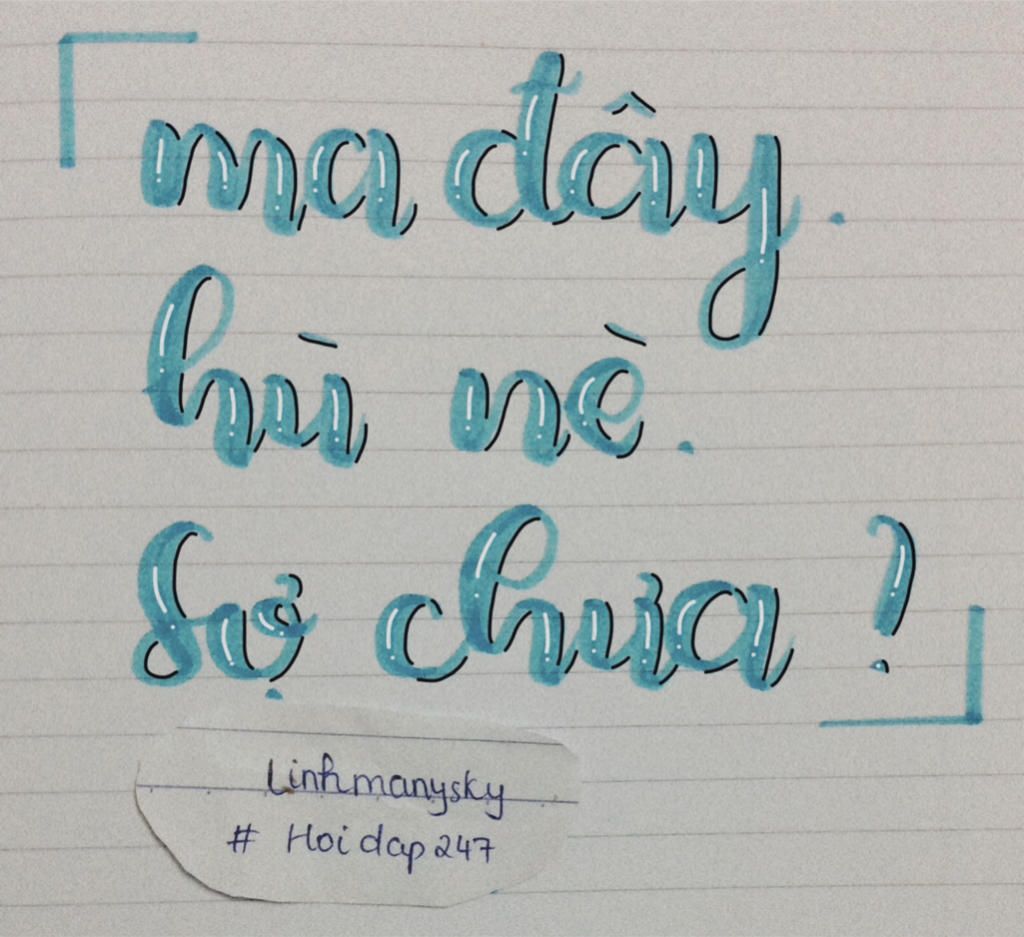 ma đây.
hù nè.
Sợ chưa?
Linhmanysky
# Hoidap247